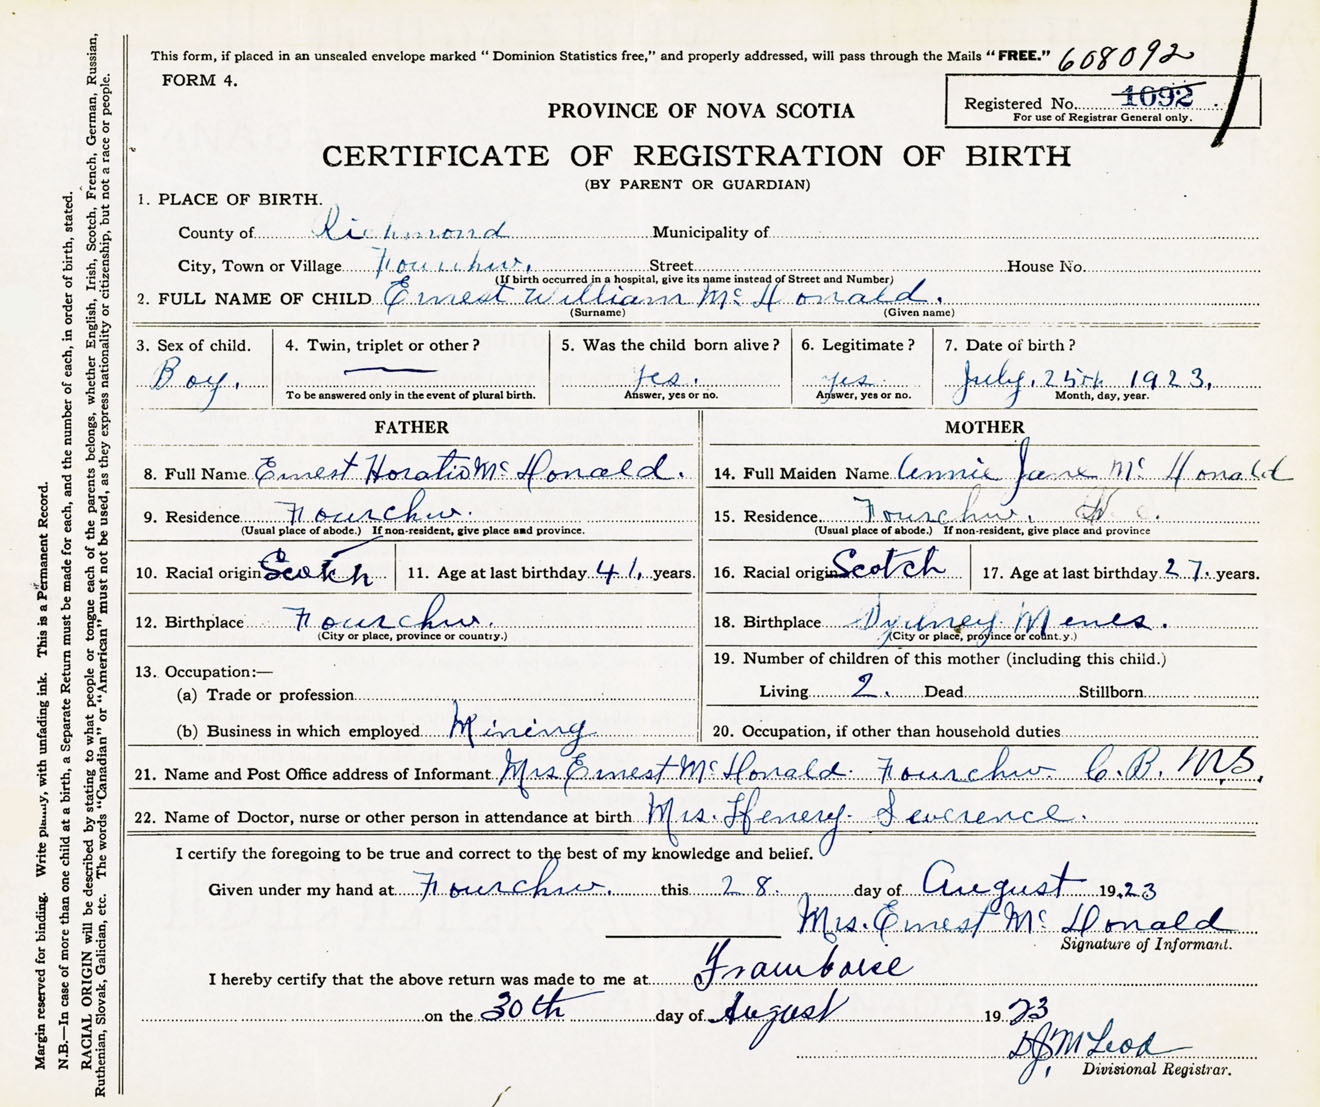 This form, if placed in an unsealed envelope marked "Dominion Statistics free," and properly addressed, will pass through the Mails "FREE." 608092
FORM 4.
Registered No. 1092
For use of Registrar General only.
PROVINCE OF NOVA SCOTIA
CERTIFICATE OF REGISTRATION OF BIRTH
(BY PARENT OR GUARDIAN)
1. PLACE OF BIRTH.
County of Richmond Municipality of
City, Town or Village Fourchu. Street House No.
(If birth occurred in a hospital, give its name instead of Street and Number)
2. FULL NAME OF CHILD Ernest William Mc Donald.
(Surname) (Given name)
3. Sex of child. 4. Twin, triplet or other? 5. Was the child born alive? 6. Legitimate? 7. Date of birth?
Boy. — Yes. yes. July, 25th 1923.
To be answered only in the event of plural birth. Answer, yes or no. Answer, yes or no. Month, day, year.
FATHER MOTHER
8. Full Name Ernest Horatio Mc Donald. 14. Full Maiden Name Annie Jane Mc Donald
9. Residence Fourchu. 15. Residence Fourchu.
(Usual place of abode.) If non-resident, give place and province. (Usual place of abode.) If non-resident, give place and province
10. Racial origin Scotch 11. Age at last birthday 41. years. 16. Racial origin Scotch 17. Age at last birthday 27. years.
12. Birthplace Fourchu. 18. Birthplace Sydney Mines.
(City or place, province or country.) (City or place, province or count.y.)
13. Occupation:— 19. Number of children of this mother (including this child.)
(a) Trade or profession Living 2. Dead Stillborn
(b) Business in which employed Mining 20. Occupation, if other than household duties
21. Name and Post Office address of Informant Mrs Ernest Mc Donald. Fourchu. C.B. N.S.
22. Name of Doctor, nurse or other person in attendance at birth Mrs. Henery. Severence.
I certify the foregoing to be true and correct to the best of my knowledge and belief.
Given under my hand at Fourchu. this 28. day of August 1923
Mrs. Ernest Mc Donald
Signature of Informant.
I hereby certify that the above return was made to me at Framboise
on the 30th day of August 1923
D J McLeod
Divisional Registrar.
Margin reserved for binding. Write plainly, with unfading ink. This is a Permanent Record.
N.B.—In case of more than one child at a birth, a Separate Return must be made for each, and the number of each, in order of birth, stated.
RACIAL ORIGIN will be described by stating to what people or tongue each of the parents belongs, whether English, Irish, Scotch, French, German, Russian,
Ruthenian, Slovak, Galician, etc. The words "Canadian" or "American" must not be used, as they express nationality or citizenship, but not a race or people.